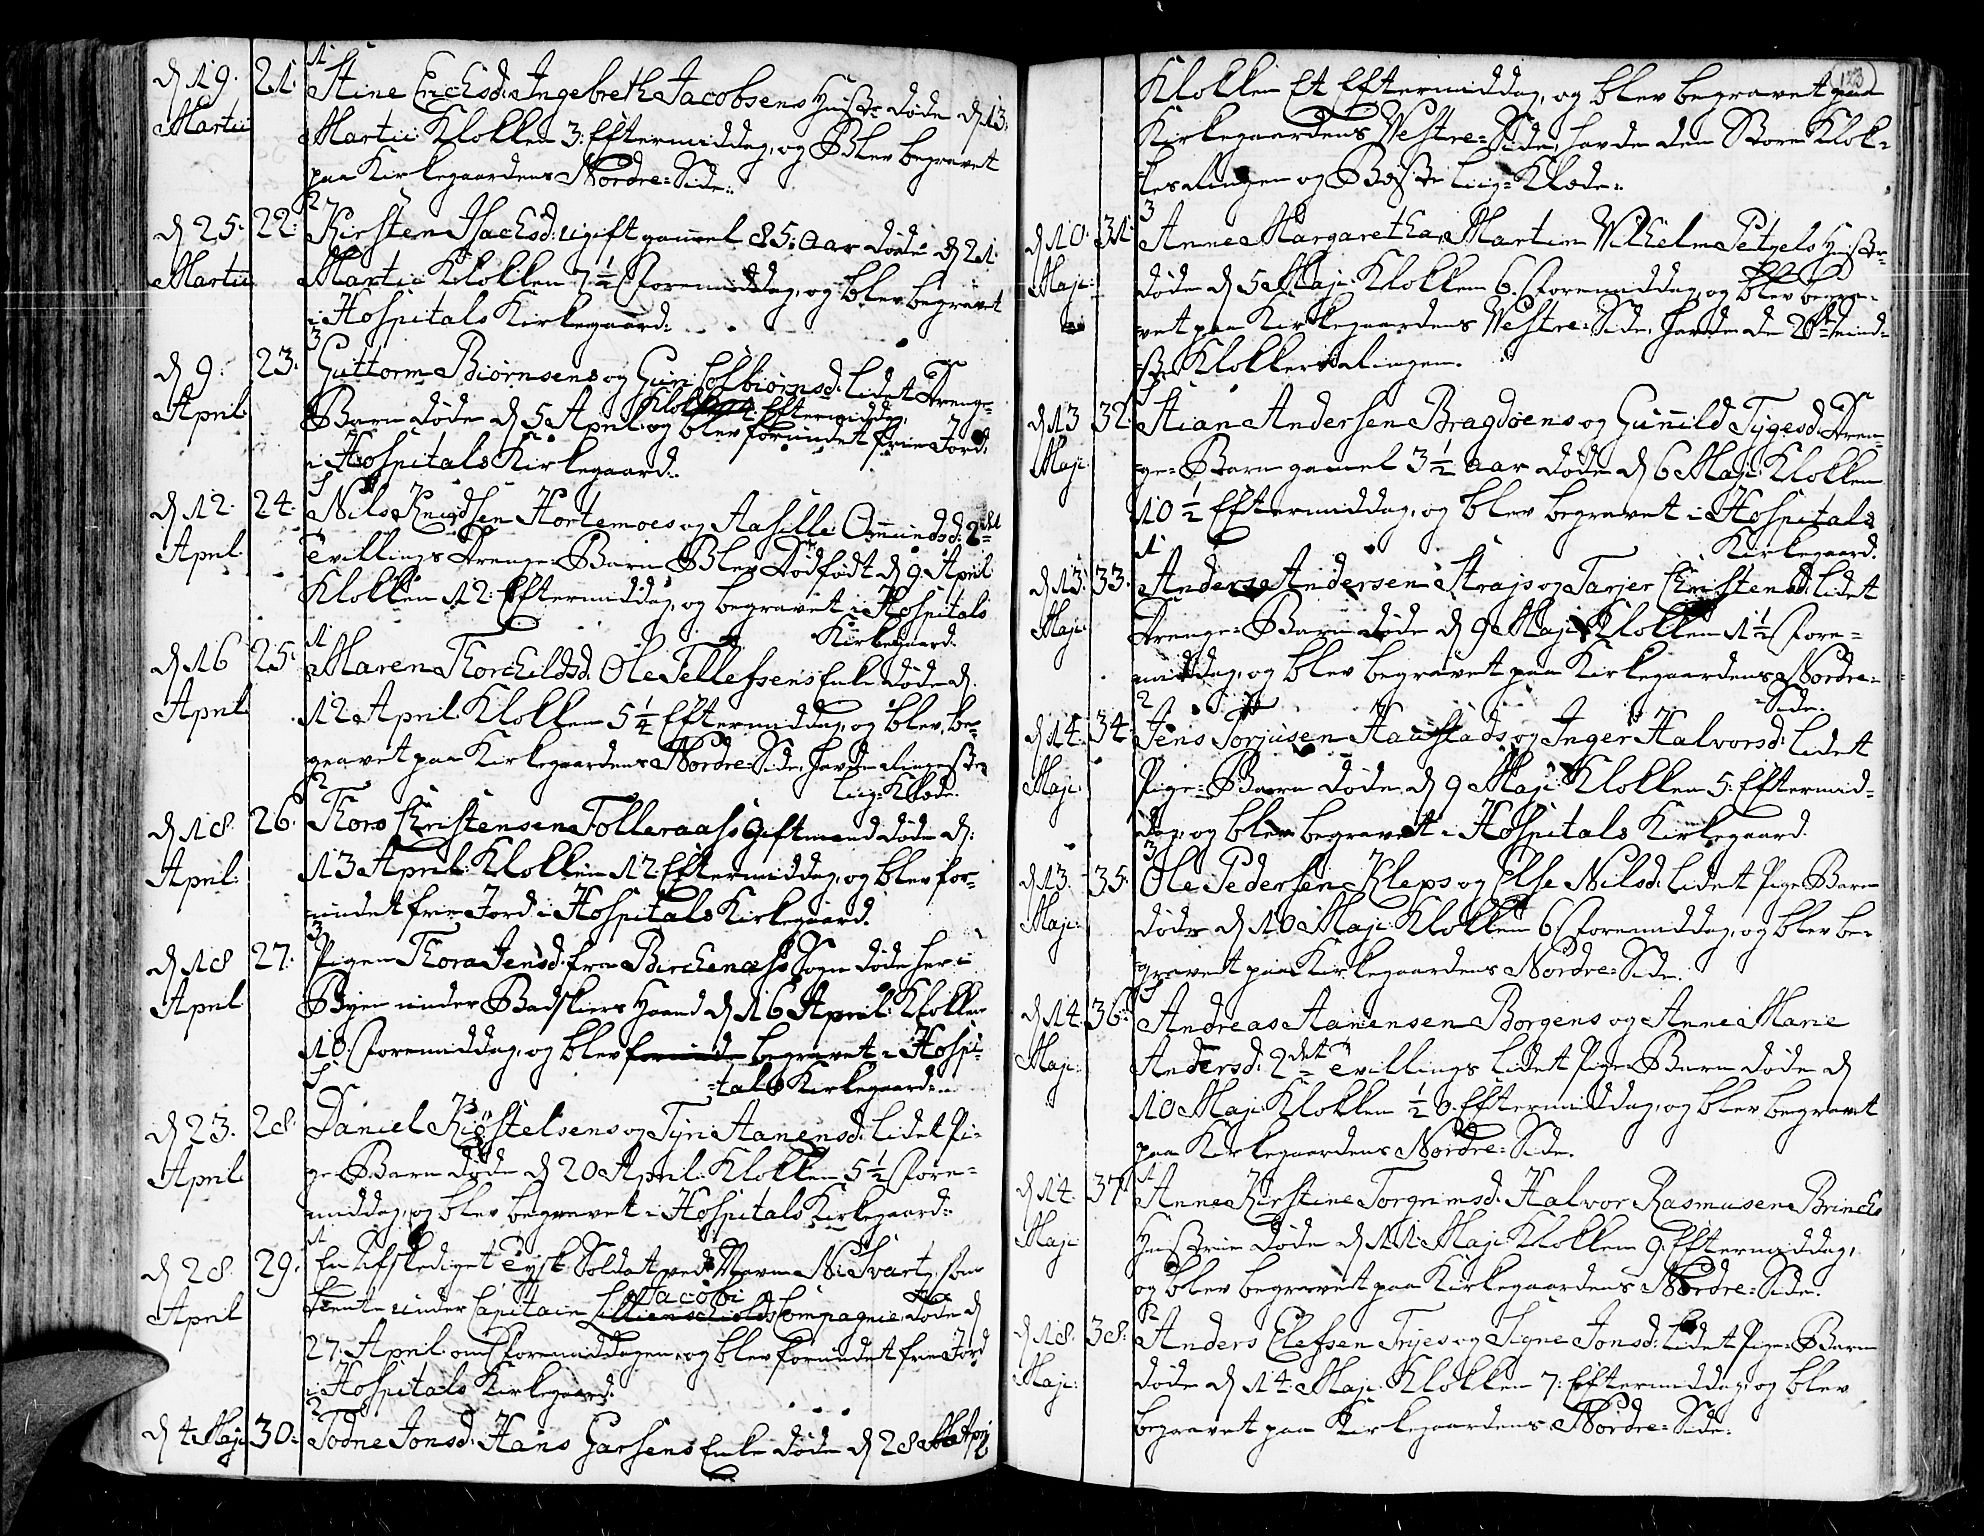 d 19. Martii 21. 1 Stine Erichsd: Ingebreth Jacobsens Hustr: døde d 13.
Martii Klokken 3: Eftermiddag, og Blev begravet
paa Kirkegaardens Nordre=Side:
d 25. Martii 22. 2 Kirsten Isachsd: ugift gamel 85: aar døde d 21.
Martii Klokken 7 1/2 Formiddag, og blev begravet
i Hospitals Kirkegaard:
d 9. April 23. 3 Guttorm Biørnsens og Guri Colbiørnsd: lidet Drenge=
Klokken Eftermiddag,
Barn døde d 5 April og blev forundet frie Jord
i Hospitals Kirkegaard.
d 12. April 24. Nils Knudsen Hortemoes og Aasille Omundsd: 2det
Tvillings Drenge=Barn Blev Dødfødt d 9. April
Klokken 12: Eftermiddag, og begravet i Hospitals
Kirkegaard.
d 16 April 25. 1 Maren Thorchildsd. Ole Tellefsens Enke døde d.
12 April Klokken 5 1/4 Eftermiddag, og blev be=
gravet paa Kirkegaardens Nordre=Side, havde
liig=Klæde.
d 18. April: 26. 2 Thors Christensen Tolleraas Giftmand døde d:
13 April: Klokken 12: Eftermiddag, og blev for=
undet frie Jord i Hospitals Kirkegaard.
d 18 April 27. 3 Pigen Thora Jensd: fra Birchenæss Sogn døde her i
Byen under Badskiers Haand d 16 April: Klokken
10. Formiddag, og blev forunde begravet i Hospi=
=tals Kirkegaard:
d 23. April 28. Daniel Kiøstelsens og Tyri Aanensd: lidet Pi=
ge Barn døde d 20 April: Klokken 5 1/2 For=
middag, og blev begravet i Hospitals Kirkegaard:
d 28. April 29. 1 En Afskediget Tydsk Soldat ved Navn Ni Svartz, som
Jacobi
tiente under Capitain Lillienschiolds Compagnie døde d
27. April om Formiddagen og blev forundet frie Jord
i Hospitals Kirkegaard:
d 4 Maji 30. 2 Todne Jonsd. Hans Garsens Enke døde d 28 April
123
Klokken Et Eftermiddag, og blev begravet paa
Kirkegaardens Vestre=Side, havde den Store Klok=
kes Ringen og Beste liig=Klæde:
d 10. Maji: 31. 3 Anne Margaretha Martin Vilhelm Petzels Hustr:
døde d 5 Maji: Klokken 6. Formiddag, og blev begra=
vet paa Kirkegaardens Vestre=Side, havde de 2de mind=
ste Klokkers Ringen.
d 13 Maji 32. Stian Andersen Bragdøens og Gunild Tygesd: Dren=
ge=Barn gamel 3 1/2 aar døde d 6 Maji Klokken
10 1/2 Eftermiddag, og blev begravet i Hospitals
Kirkegaard.
d 13. Maji 33. 1 Anders Andersen Strajs og Tarjer Christensd: lidet
Drenge=Barn døde d 9 Maji Klokken 1 1/2 For=
middag, og blev begravet paa Kirkegaardens Nordre=
Side.
d 14. Maji. 34. 2 Jens Torjusen Haustads og Inger Halvorsd: lidet
Pige=Barn døde d 9 Maji Klokken 5: Eftermid=
dag, og blev begravet i Hospitals Kirkegaard.
d 13. Maji: 35. 3 Ole Pedersen Kleps og Else Nilsd. lidet Pige Barn
døde d 10 Maji Klokken 6 Formiddag, og blev be=
gravet paa Kirkegaardens Nordre=Side.
d 14. Maji: 36. Andreas Aanensen Borgens og Anne Marie
Andersd: 2det Tvillings lidet Pige Barn døde d
10 Maji Klokken 1/2 6. Eftermiddag, og blev begravet
paa Kirkegaardens Nordre=Side.
d 14. Maji 37. 1 Anne Kirstine Torgrimsd. Halvor Rasmusen Brinchs
Hustrue døde d 11. Maji Klokken 9. Eftermiddag,
og blev begravet paa Kirkegaardens Nordre=Side.
d 18. Maji: 38. 2 Anders Elefsen Tryes og Signe Jonsd: lidet Pige=Barn
døde d 14. Maji Klokken 7: Eftermiddag, og blev
begravet paa Kirkegaardens Nordre=Side: